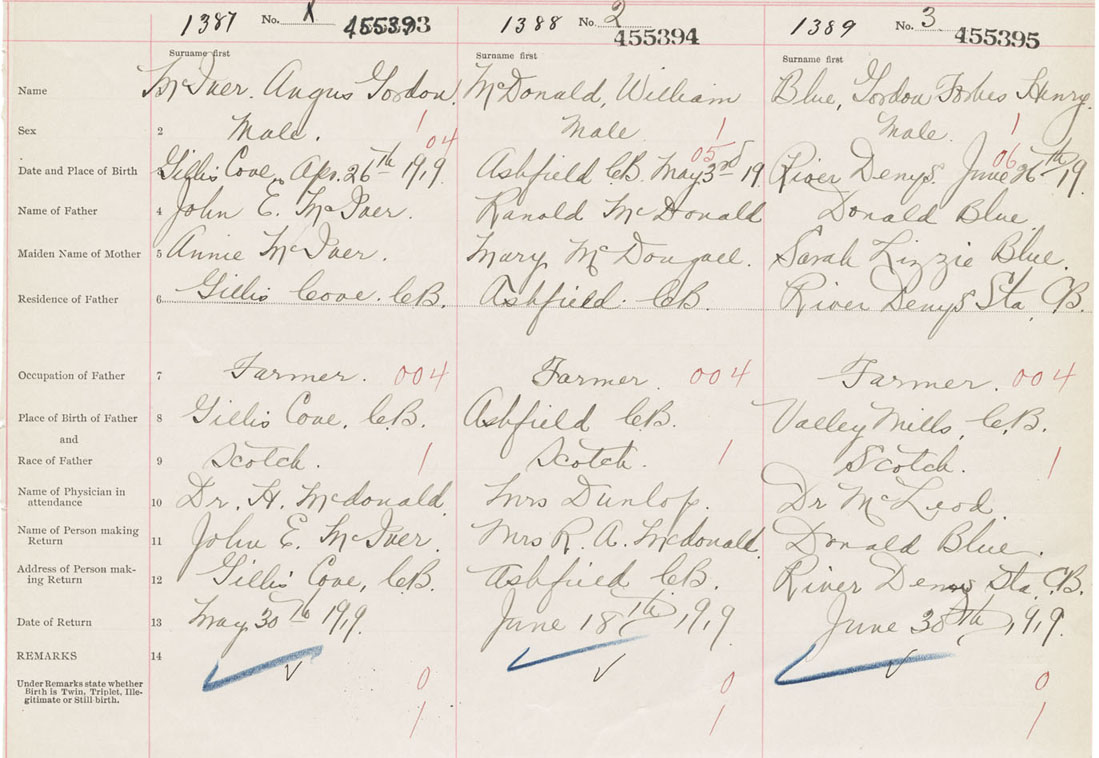 1387 No. 1 455393 1388 No. 2 455394 1389 No. 3 455395
Surname first Surname first Surname first
Name McIver. Angus Gordon. McDonald, William Blue, Gordon Forbes Henry.
Sex 2 Male. 1 Male 1 Male. 1
04 05 06
Date and Place of Birth 3 Gillis Cove, Apr. 26th 1919 Ashfield C.B. May 3rd 19 River Denys. June 26th 19
Name of Father 4 John E. McIver. Ranald McDonald Donald Blue
Maiden Name of Mother 5 Annie McIver. Mary McDougall. Sarah Lizzie Blue.
Residence of Father 6 Gillis Cove. C.B. Ashfield. C.B. River Denys Sta, C.B.
Occupation of Father 7 Farmer. 004 Farmer. 004 Farmer. 004
Place of Birth of Father 8 Gillis Cove, C.B. Ashfield C.B. Valley Mills, C.B.
and
Race of Father 9 Scotch. 1 Scotch. 1 Scotch. 1
Name of Physician in
attendance 10 Dr. H. Mcdonald. Mrs Dunlop. Dr McLeod.
Name of Person making
Return 11 John E. McIver. Mrs R. A. Mcdonald. Donald Blue.
Address of Person mak-
ing Return 12 Gillis Cove, C.B. Ashfield C.B. River Denys Sta, C.B.
Date of Return 13 May 30th 1919. June 18th, 1919 June 30th, 1919.
REMARKS 14
Under Remarks state whether 0 0 0
Birth is Twin, Triplet, Ille-
gitimate or Still birth. 1 1 1